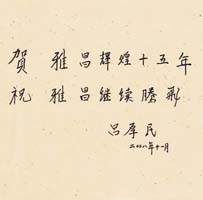 賀 雅昌輝煌十五年
祝 雅昌继续腾飛
吕厚民
二〇〇八年十一月